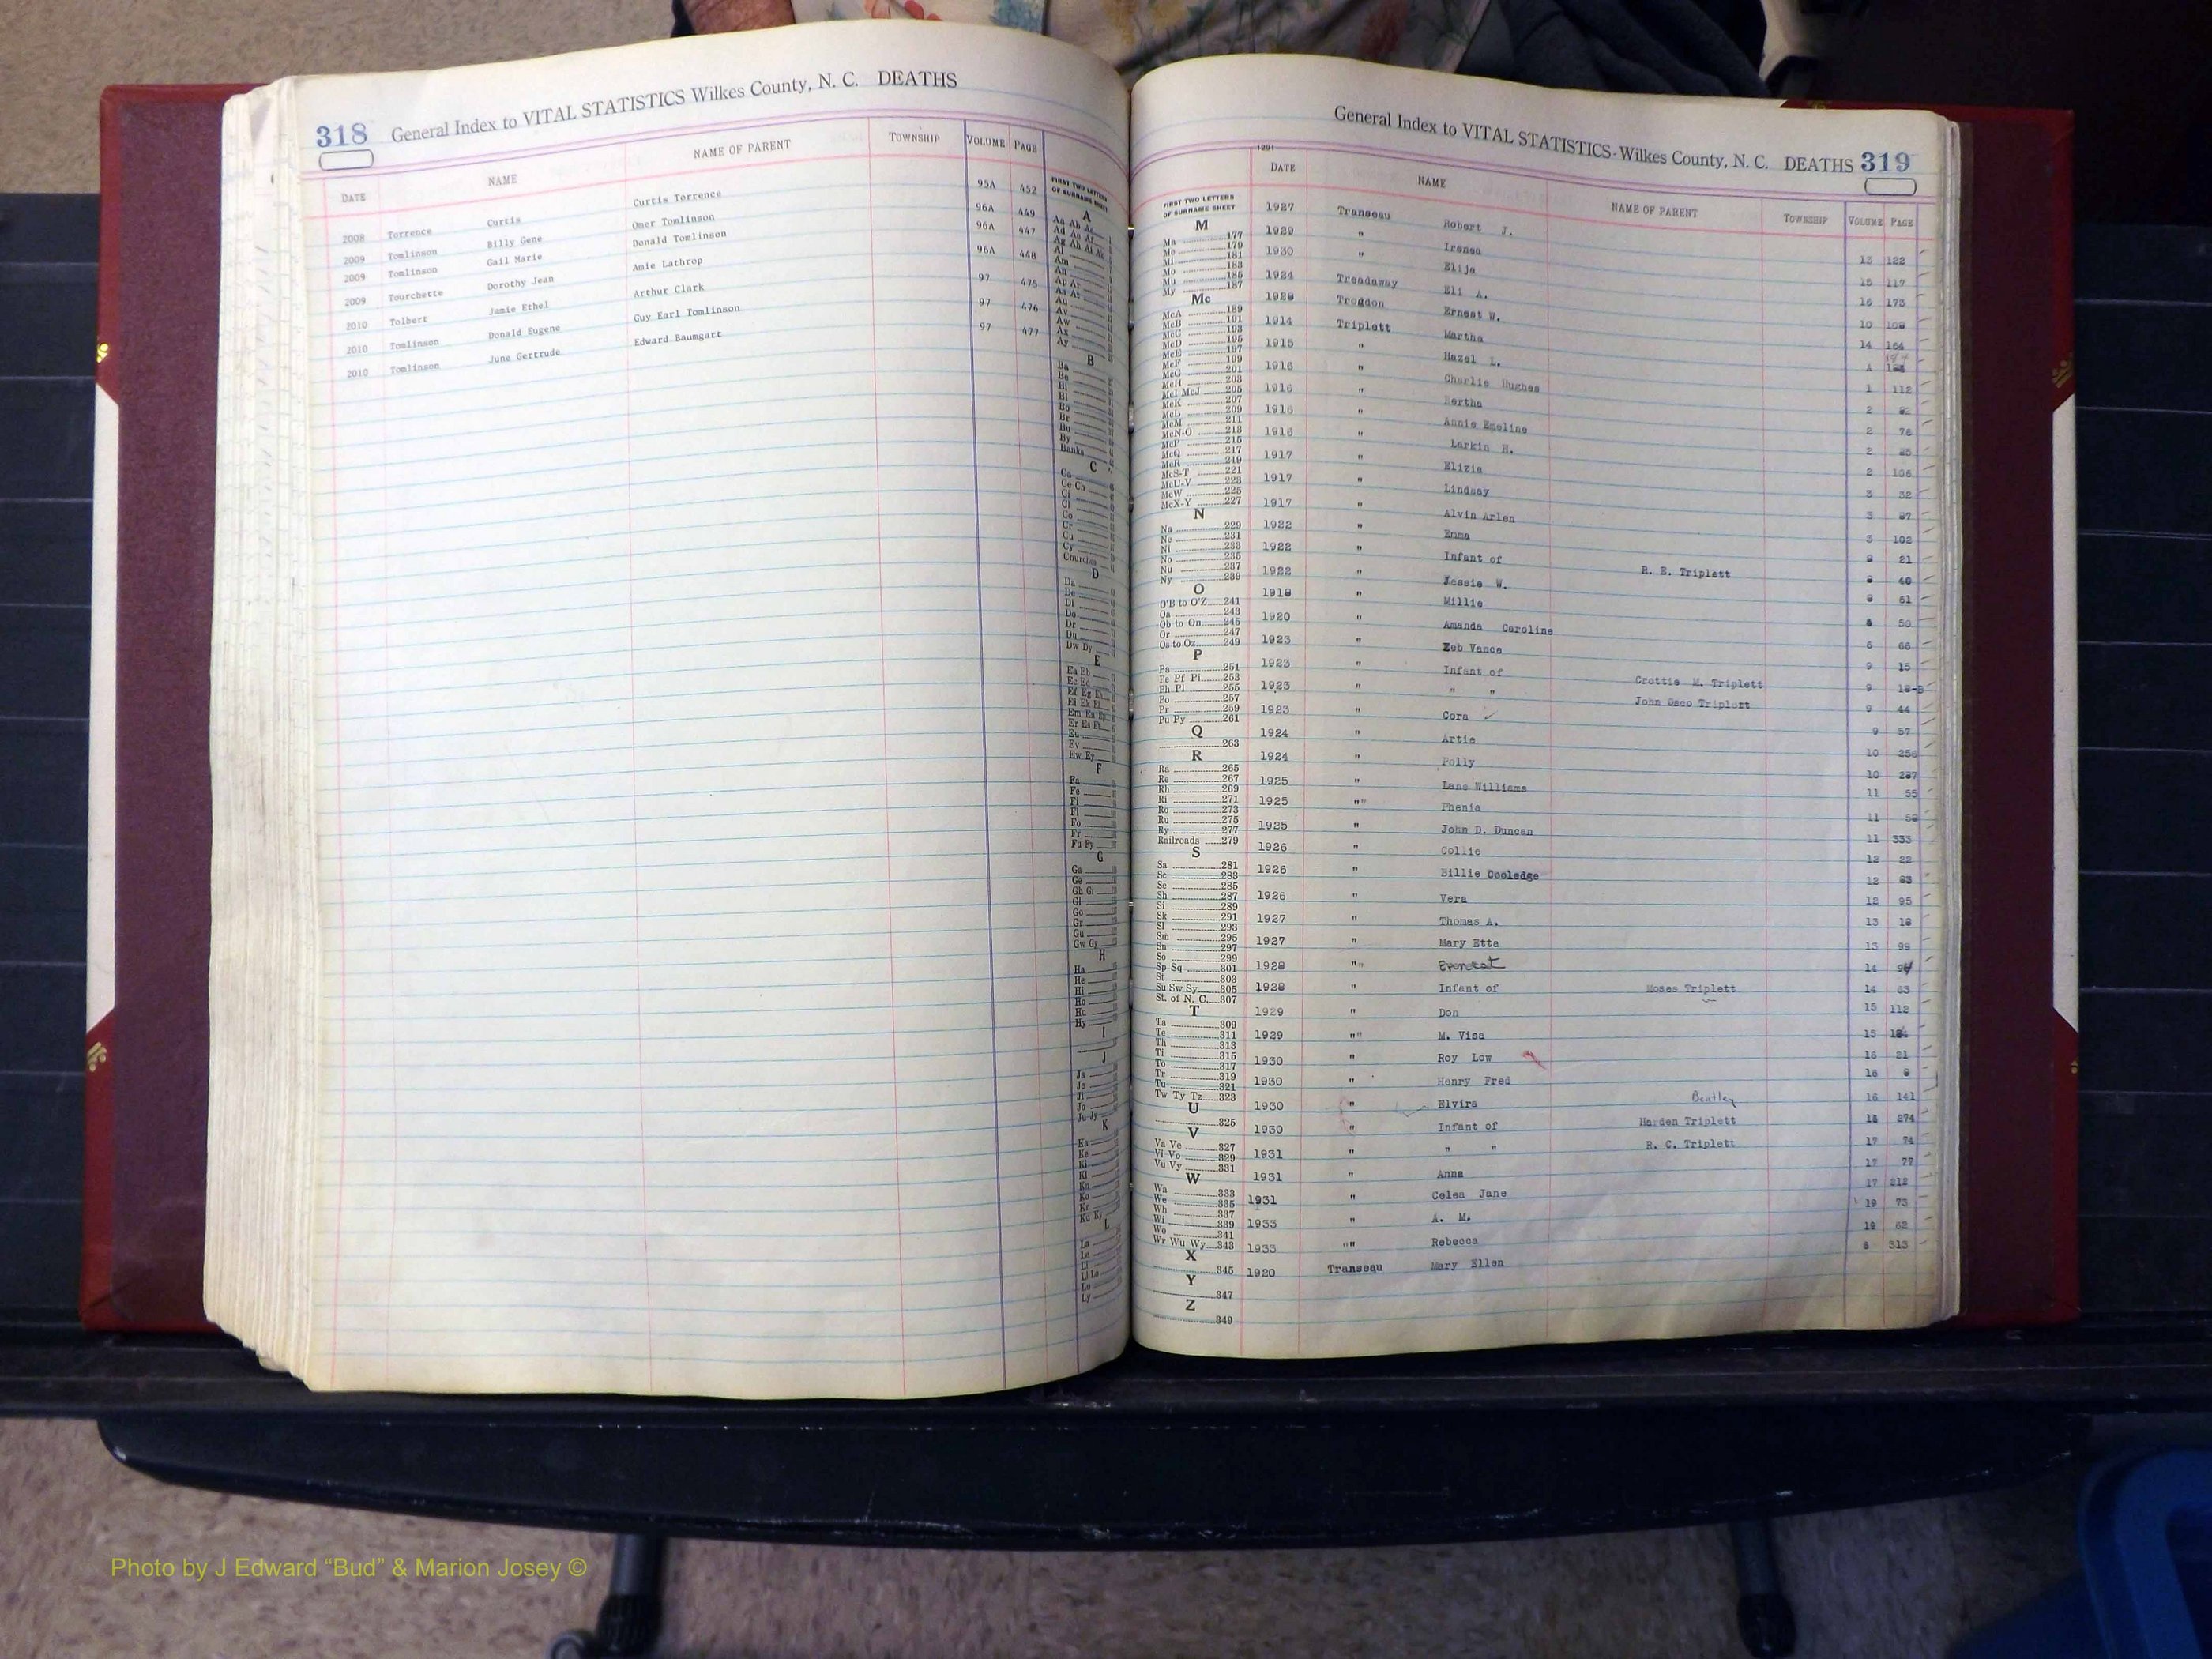 318 General Index to VITAL STATISTICS Wilkes County, N. C. DEATHS
DATE NAME NAME OF PARENT TOWNSHIP VOLUME PAGE
2008 Torrence Curtis Curtis Torrence 95A 452
2009 Tomlinson Billy Gene Omer Tomlinson 96A 449
2009 Tomlinson Gail Marie Donald Tomlinson 96A 447
2009 Tourchette Dorothy Jean Amie Lathrop 96A 448
2010 Tolbert Jamie Ethel Arthur Clark 97 475
2010 Tomlinson Donald Eugene Guy Earl Tomlinson 97 476
2010 Tomlinson June Gertrude Edward Baumgart 97 477
FIRST TWO LETTERS
OF SURNAME SHEET
A
Aa Ab Ac
Am
An
Ap Ar
As At
Au
Av
Aw
Ax
Ay
B
Ba
Be
Bi
Bl
Bo
Br
Bu
By
Banks
C
Ca
Ce Ch
Ci
Cl
Co
Cr
Cu
Cy
Churches
D
Da
De
Di
Do
Dr
Du
Dw Dy
E
Ea Eb
Ec Ed
Eu
Ev
Ew Ey
F
Fa
Fe
Fi
Fl
Fo
Fr
Fu Fy
G
Ga
Ge
Gh Gi
Gl
Go
Gr
Gu
Gw Gy
H
Ha
He
Hi
Ho
Hu
Hy
I
J
Ja
Je
Ji
Jo
Ju Jy
K
Ka
Ke
Ki
Kl
Kn
Ko
Kr
Ku Ky
L
La
Le
Li
Lo
Ly
General Index to VITAL STATISTICS-Wilkes County, N. C. DEATHS 319
1291
DATE NAME NAME OF PARENT TOWNSHIP VOLUME PAGE
FIRST TWO LETTERS
OF SURNAME SHEET
M
Ma 177
Me 179
Mi 181
Mo 183
Mu 185
My 187
Mc
McA 189
McB 191
McC 193
McD 195
McE 197
McF 199
McG 201
McH 203
McI McJ 205
McK 207
McL 209
McM 211
McN-O 213
McP 215
McQ 217
McR 219
McS-T 221
McU-V 223
McW 225
McX-Y 227
N
Na 229
Ne 231
Ni 233
No 235
Nu 237
Ny 239
O
O'B to O'Z 241
Oa 243
Ob to On 245
Or 247
Os to Oz 249
P
Pa 251
Pe Pf Pi 253
Ph Pl 255
Po 257
Pr 259
Pu Py 261
Q
263
R
Ra 265
Re 267
Rh 269
Ri 271
Ro 273
Ru 275
Ry 277
Railroads 279
S
Sa 281
Sc 283
Se 285
Sh 287
Si 289
Sk 291
Sl 293
Sm 295
Sn 297
So 299
Sp Sq 301
St 303
Su Sw Sy 305
St. of N. C. 307
T
Ta 309
Te 311
Th 313
Ti 315
To 317
Tr 319
Tu 321
Tw Ty Tz 323
U
325
V
Va Ve 327
Vi Vo 329
Vu Vy 331
W
Wa 333
We 335
Wh 337
Wi 339
Wo 341
Wr Wu Wy 343
X
345
Y
347
Z
349
1927 Transeau Robert J. 13 122
1929 " Irenea 15 117
1930 " Elija 16 173
1924 Treadaway Eli A. 10
1928 Trogdon Ernest W. 14 164
1914 Triplett Martha
1915 " Hazel L. 1 112
1916 " Charlie Hughes 2
1916 " Bertha 2 76
1916 " Annie Emeline 2
1916 " Larkin H. 2 106
1917 " Elizia 3 32
1917 " Lindsay 3
1917 " Alvin Arlen 3 102
1922 " Emma 21
1922 " Infant of R. E. Triplett 40
1922 " Jessie W. 61
1918 " Millie 50
1920 " Amanda Caroline 6 66
1923 " Zeb Vance 9 15
1923 " Infant of Crottie M. Triplett 9 18-B
1923 " " " John Osco Triplett 9 44
1923 " Cora 9 57
1924 " Artie 10
1924 " Polly 10
1925 " Lane Williams 11 55
1925 " Phenia 11
1925 " John D. Duncan 11 333
1926 " Collie 12 22
1926 " Billie Cooledge 12
1926 " Vera 12 95
1927 " Thomas A. 13
1927 " Mary Etta 13 99
1928 " Ernest 14
1928 " Infant of Moses Triplett 14 63
1929 " Don 15 112
1929 " M. Visa 15
1930 " Roy Low 16 21
1930 " Henry Fred 16
1930 " Elvira Bentley 16 141
1930 " Infant of Harden Triplett 274
1931 " " " R. C. Triplett 17 74
1931 " Anna 17 77
1931 " Celea Jane 17 212
1933 " A. M. 19 73
1933 " Rebecca 62
1920 Transeau Mary Ellen 313
Photo by J Edward “Bud” & Marion Josey ©